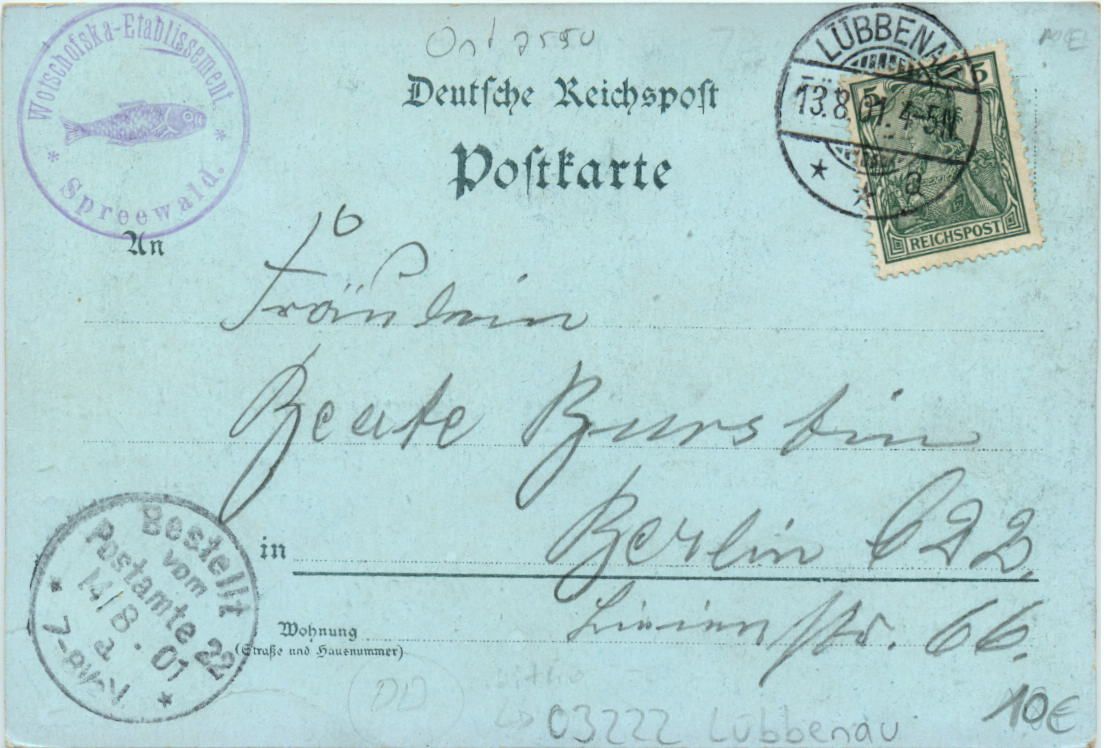 Wotschofska-Etablissement.
* Spreewald. *
Deutsche Reichspost
Postkarte
LÜBBENAU
13.8.01. 4-5N.
* * a
5 5
REICHSPOST
An
Fräulein
Beate Burstin
in Berlin C 22.
Wohnung Linienstr. 66.
(Straße und Hausnummer)
Bestellt
vom
Postamte 22
14/8.01
a
* 7-8¼V. *
03222 Lübbenau
10€